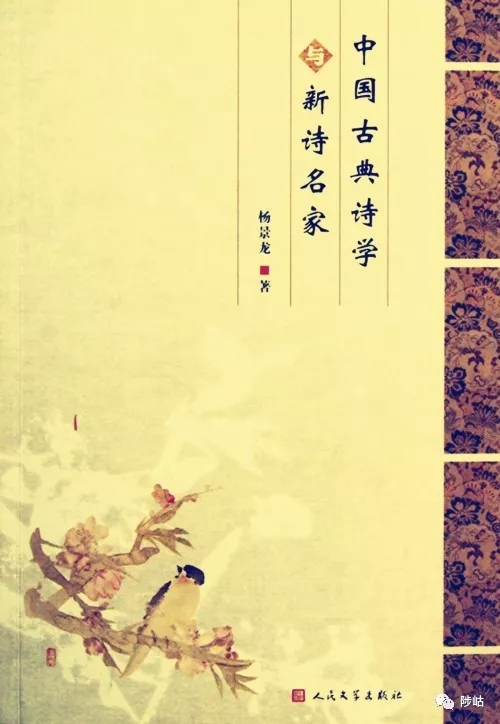 中国古典诗学
与新诗名家
杨景龙 著
人民文学出版社
陟岵